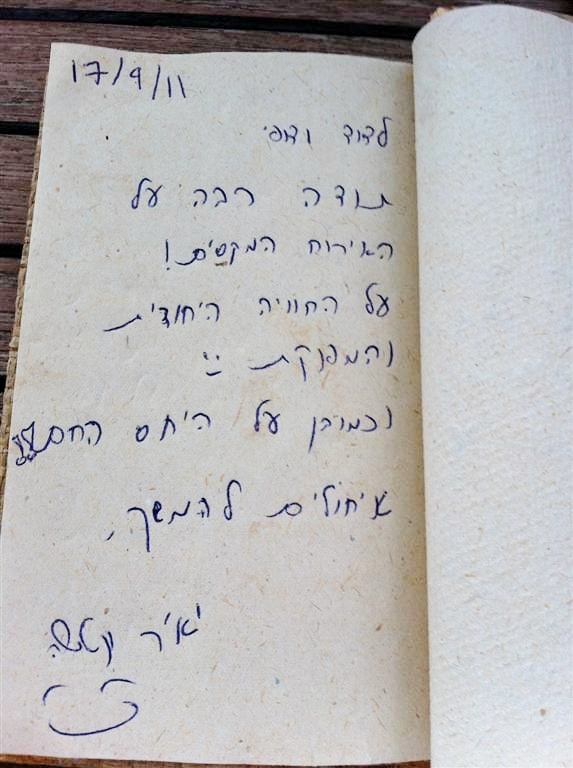 17/9/11
לדוד ודפי
תודה רבה על
האירוח המקסים!
על החוויה היחודית
והמפנקת
וכמובן על היחס החם
איחולים להמשך,
יאיר